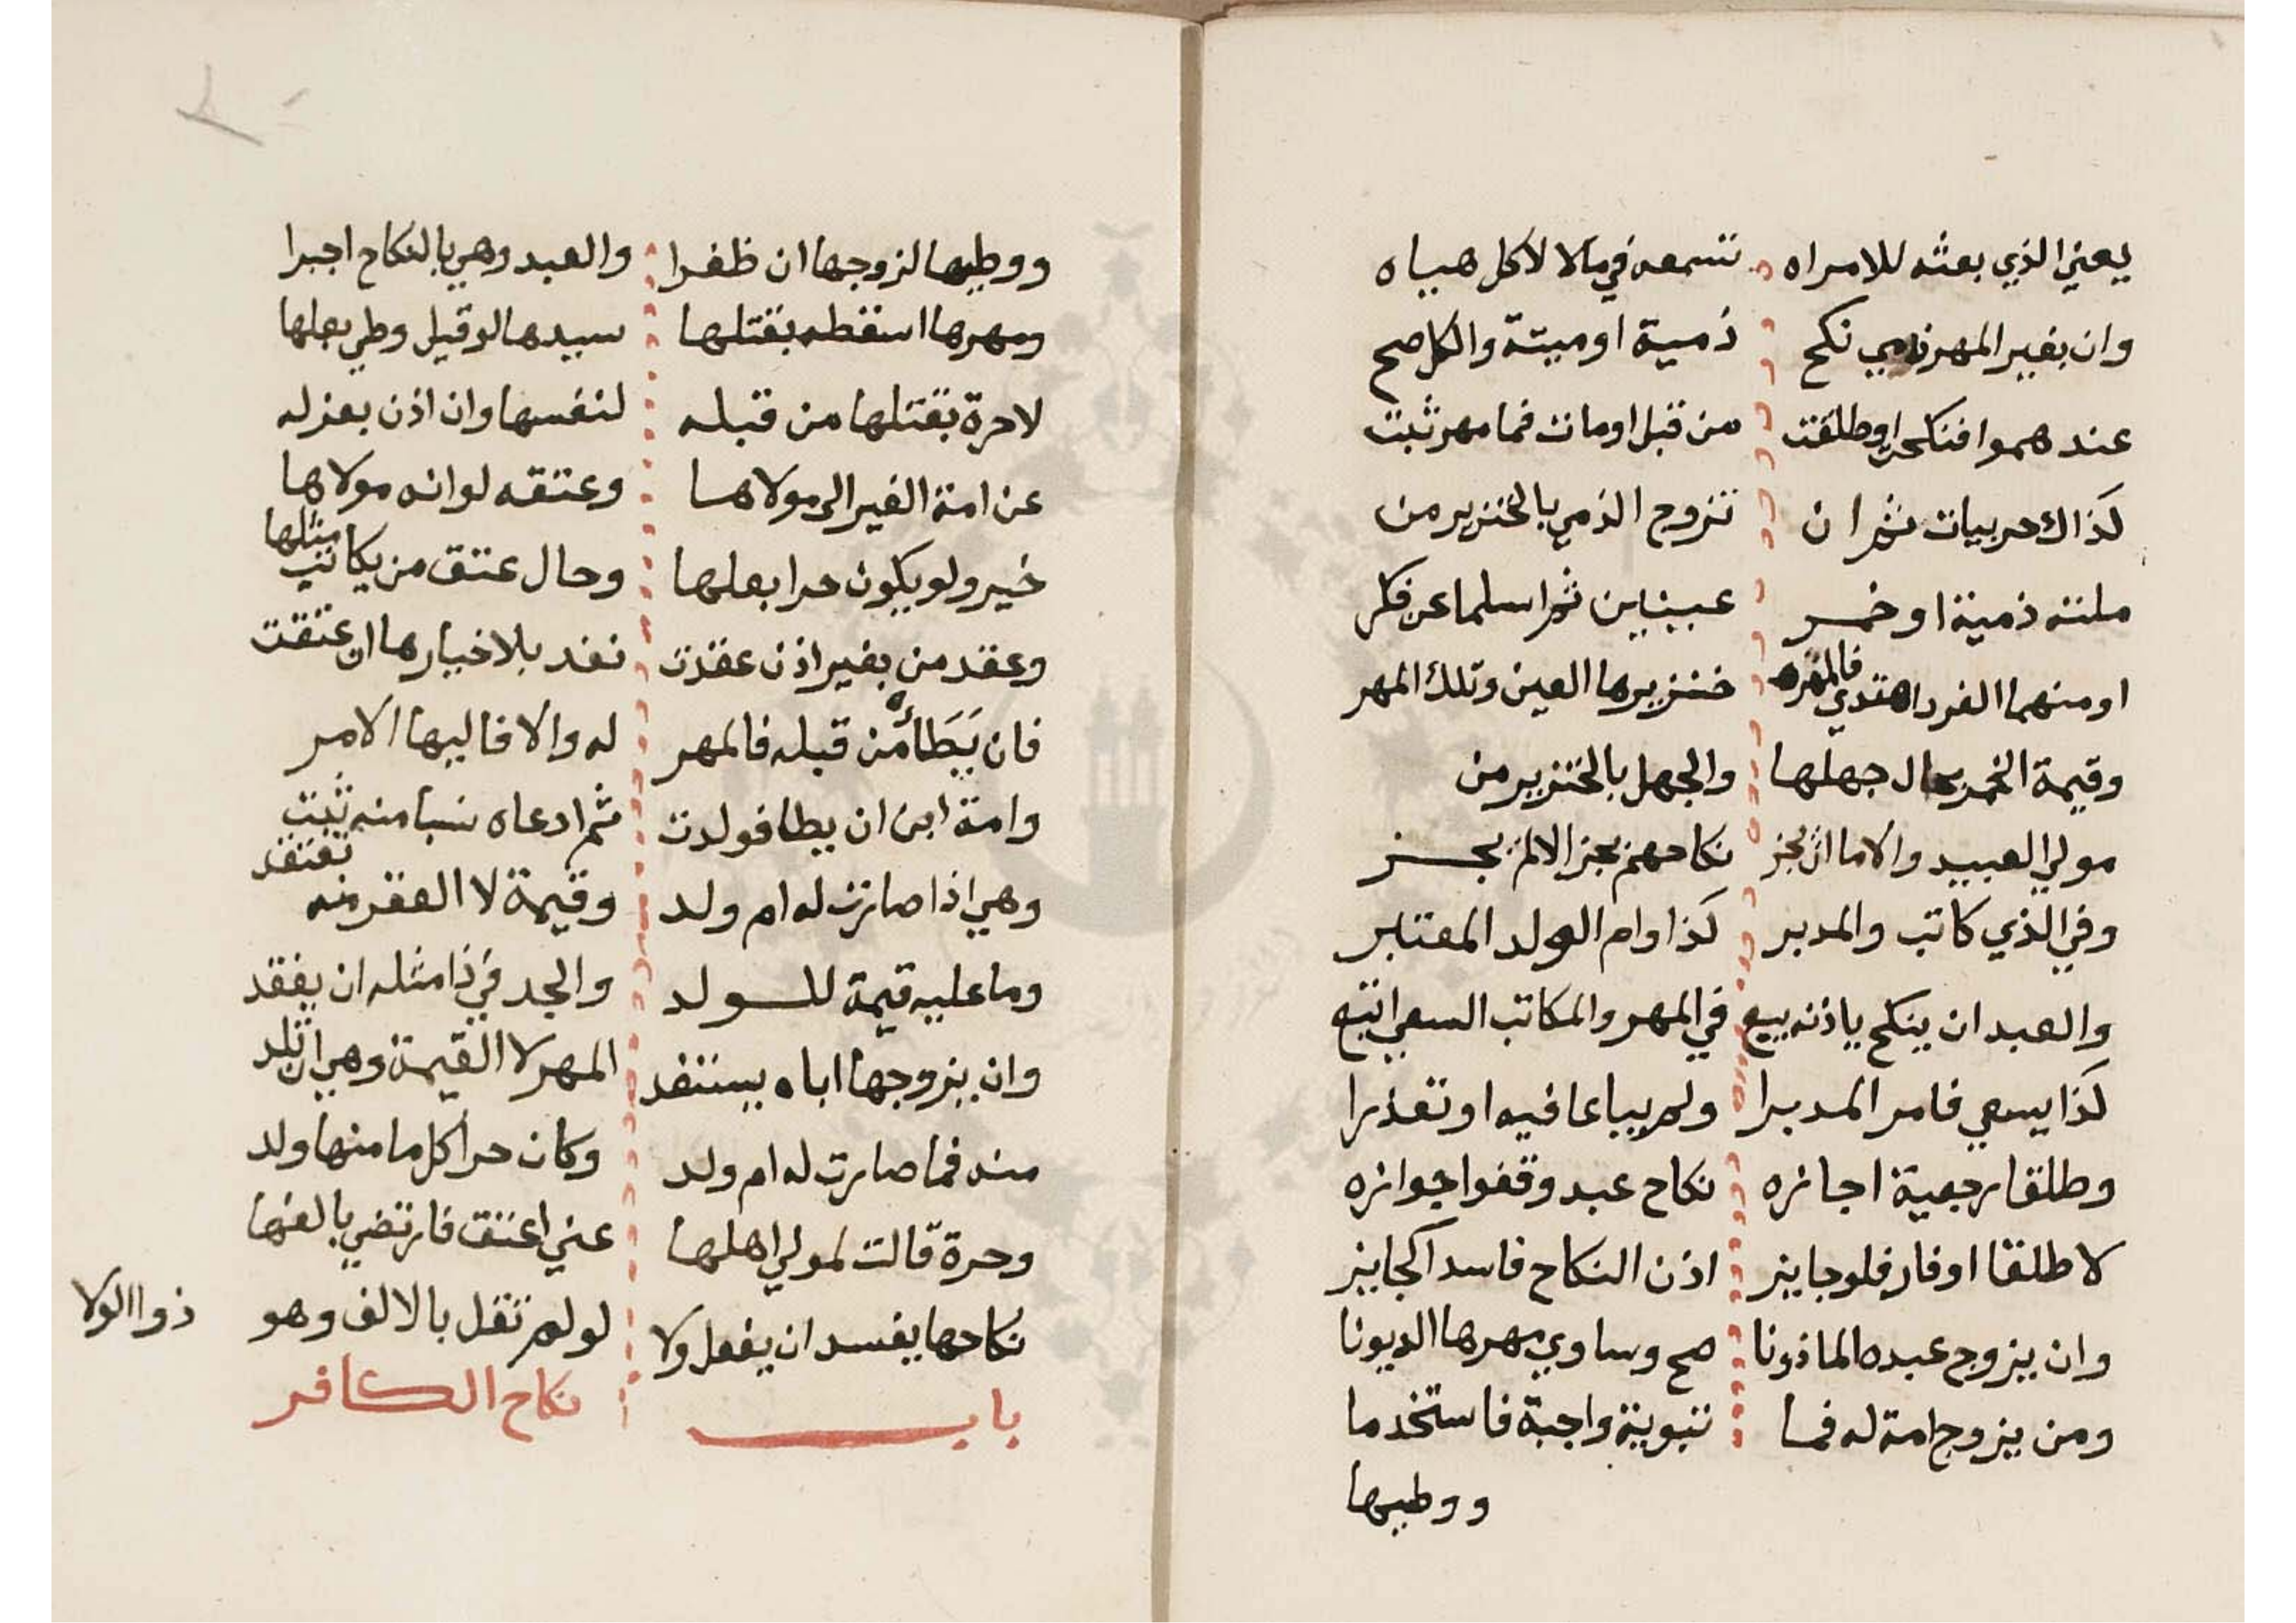 يعني الذي بعثه للامراه تسمعه في مالا لاكل هياه
وان بغير المهر ذمي نكح ذمية او ميتة والكل صح
عندهموا فنكحوا وطلقت من قبل او مات فما مهر ثبت
كذاك حربيات ثم ان تزوج الذمي بالخنزير من
ملته ذمية او خمر عينين ثم اسلما عن فكر
او منهما الفرد اهتدي فالمفره خنزيرها العين وتلك المهر
وقيمة الخمر بحال جهلها والجهل بالخنزير من
مولي العبيد والاما ان يجز نكاحهم يجز الا لم يجز
وفي الذي كاتب والمدبر كذا وام الولد المعتبر
والعبد ان ينكح باذنه بيع في المهر والمكاتب السعي اتبع
كذا يسعي فامر المدبرا ولم يباعا فيه او تعذرا
وطلقا رجعية اجازه نكاح عبد وقفوا جوازه
لا طلقا او فارفلو جايز اذن النكاح فاسد اكجايز
وان يزوج عبده الماذونا صح وساوي مهرها الديونا
ومن يزوج امة له فما تبوية واجبة فاستخدما
ووطيها
ووطيها لزوجها ان ظفرا والعبد وهي بالنكاح اجبرا
ومهرها اسقطه بقتلها سيدها لو قيل وطي بعلها
لا حرة بقتلها من قبله لنفسها وان اذن بعزله
عن امة الغير الى مولاها وعتقه لو انه مولاها
خير ولو يكون حرا بعلها وحال عتق من يكاتب مثلها
وعقد من بغير اذن عقدت نفذ بلا خيارها ان عتقت
فان يَطَأْهُ من قبله فالمهر له والا فاليها الامر
وامة ابن ان يطا فولدت ثم ادعاه نسبا منه ثبت
وهي اذا صارت له ام ولد وقيمة لا العقر منه تعتقد
وما عليه قيمة للولد والجد في ذا مثله ان يفقد
وان يزوجها اباه يستنفد المهر لا القيمة وهي ان تلد
منه فما صارت له ام ولد وكان حرا كل ما منها ولد
وحرة قالت لمولي اهلها عني اعتق فارتضي بالفها
نكاحها يفسد ان يفعل ولا لو لم تقل بالالف وهو ذو االولا
باب نكاح الكافر